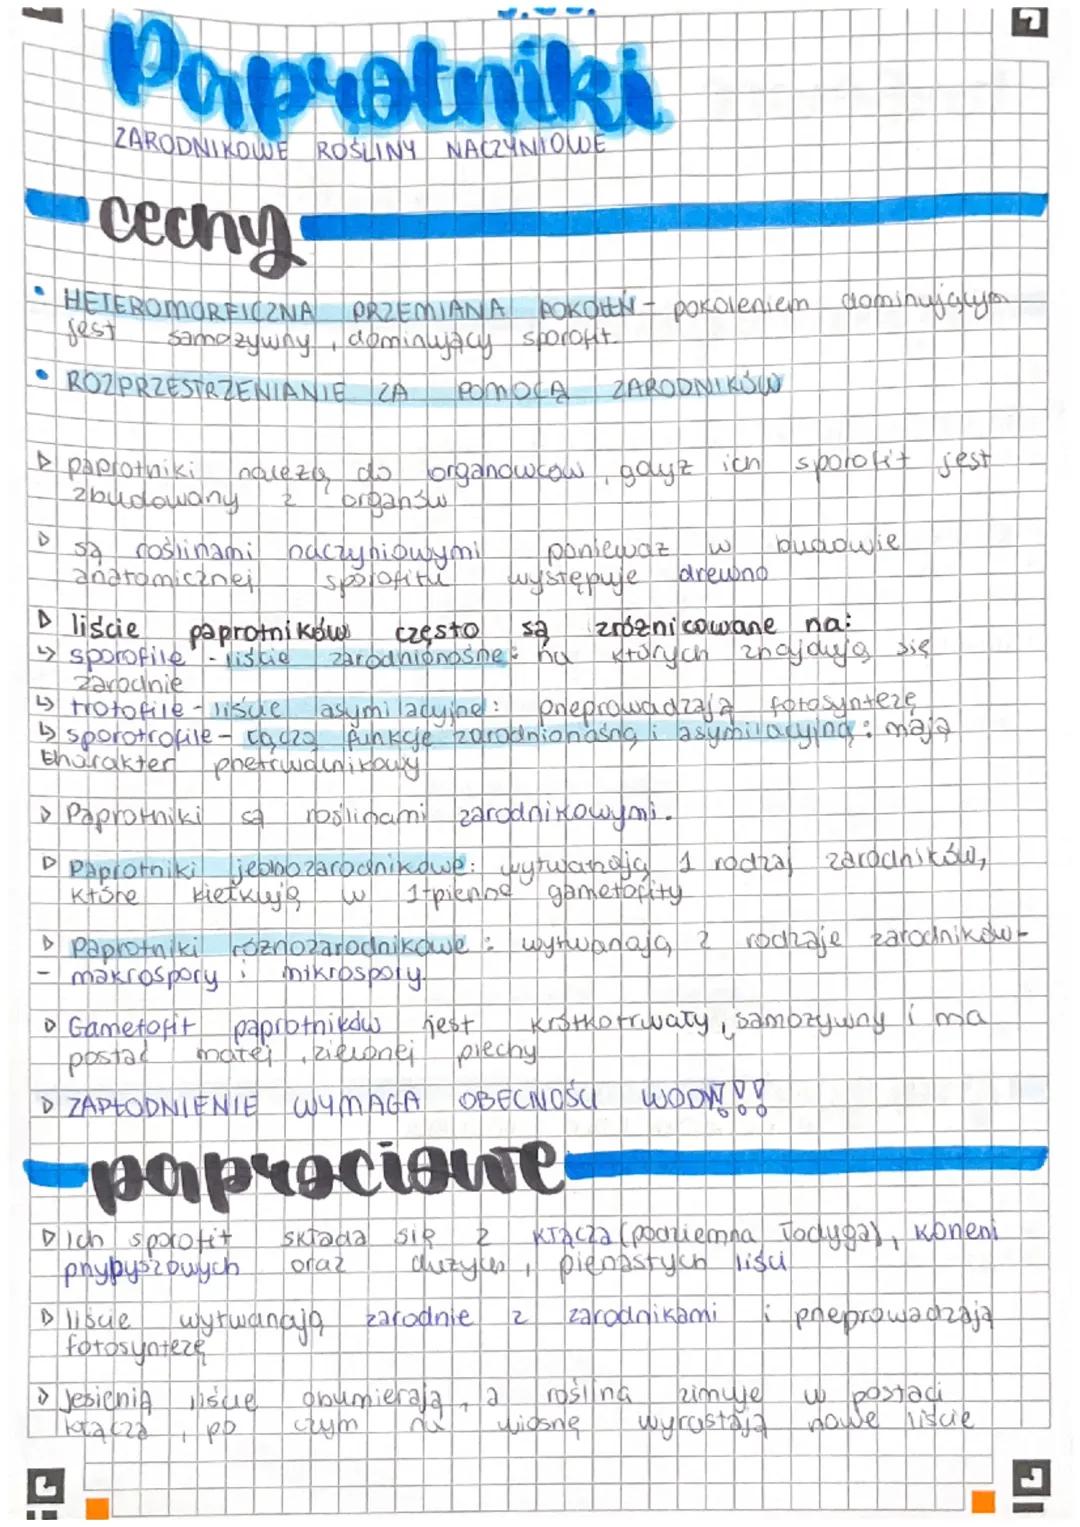 Paprotniki
ZARODNIKOWE ROŚLINY NACZYNIOWE
cechy
• HETEROMORFICZNA PRZEMIANA POKOLEŃ - pokoleniem dominującym
jest samożywny, dominujący sporofit.
• ROZPRZESTRZENIANIE ZA POMOCĄ ZARODNIKÓW
▷ paprotniki należą do organowców, gdyż ich sporofit jest
zbudowany z organów
▷ są roślinami naczyniowymi ponieważ w budowie
anatomicznej sporofitu występuje drewno
▷ liście paprotników często są zróżnicowane na:
↳ sporofile - liście zarodnionośne: na których znajdują się
zarodnie
↳ trofofile - liście asymilacyjne: przeprowadzają fotosyntezę
↳ sporotrofile - łączą funkcję zarodnionośną i asymilacyjną: mają
charakter
▷ Paprotniki są roślinami zarodnikowymi.
▷ Paprotniki jednozarodnikowe: wytwarzają 1 rodzaj zarodników,
które kiełkują w 1-pienne gametofity
▷ Paprotniki różnozarodnikowe: wytwarzają 2 rodzaje zarodników-
- makrospory i mikrospory.
▷ Gametofit paprotników jest krótkotrwały, samożywny i ma
postać małej, zielonej plechy
▷ ZAPŁODNIENIE WYMAGA OBECNOŚCI WODY!!
paprociowe
▷ Ich sporofit składa się z kłącza (podziemna łodyga), korzeni
przybyszowych oraz dużych, pierzastych liści
▷ liście wytwarzają zarodnie z zarodnikami i przeprowadzają
fotosyntezę
▷ Jesienią liście obumierają, a roślina zimuje w postaci
kłącza, po czym na wiosnę wyrastają nowe liście